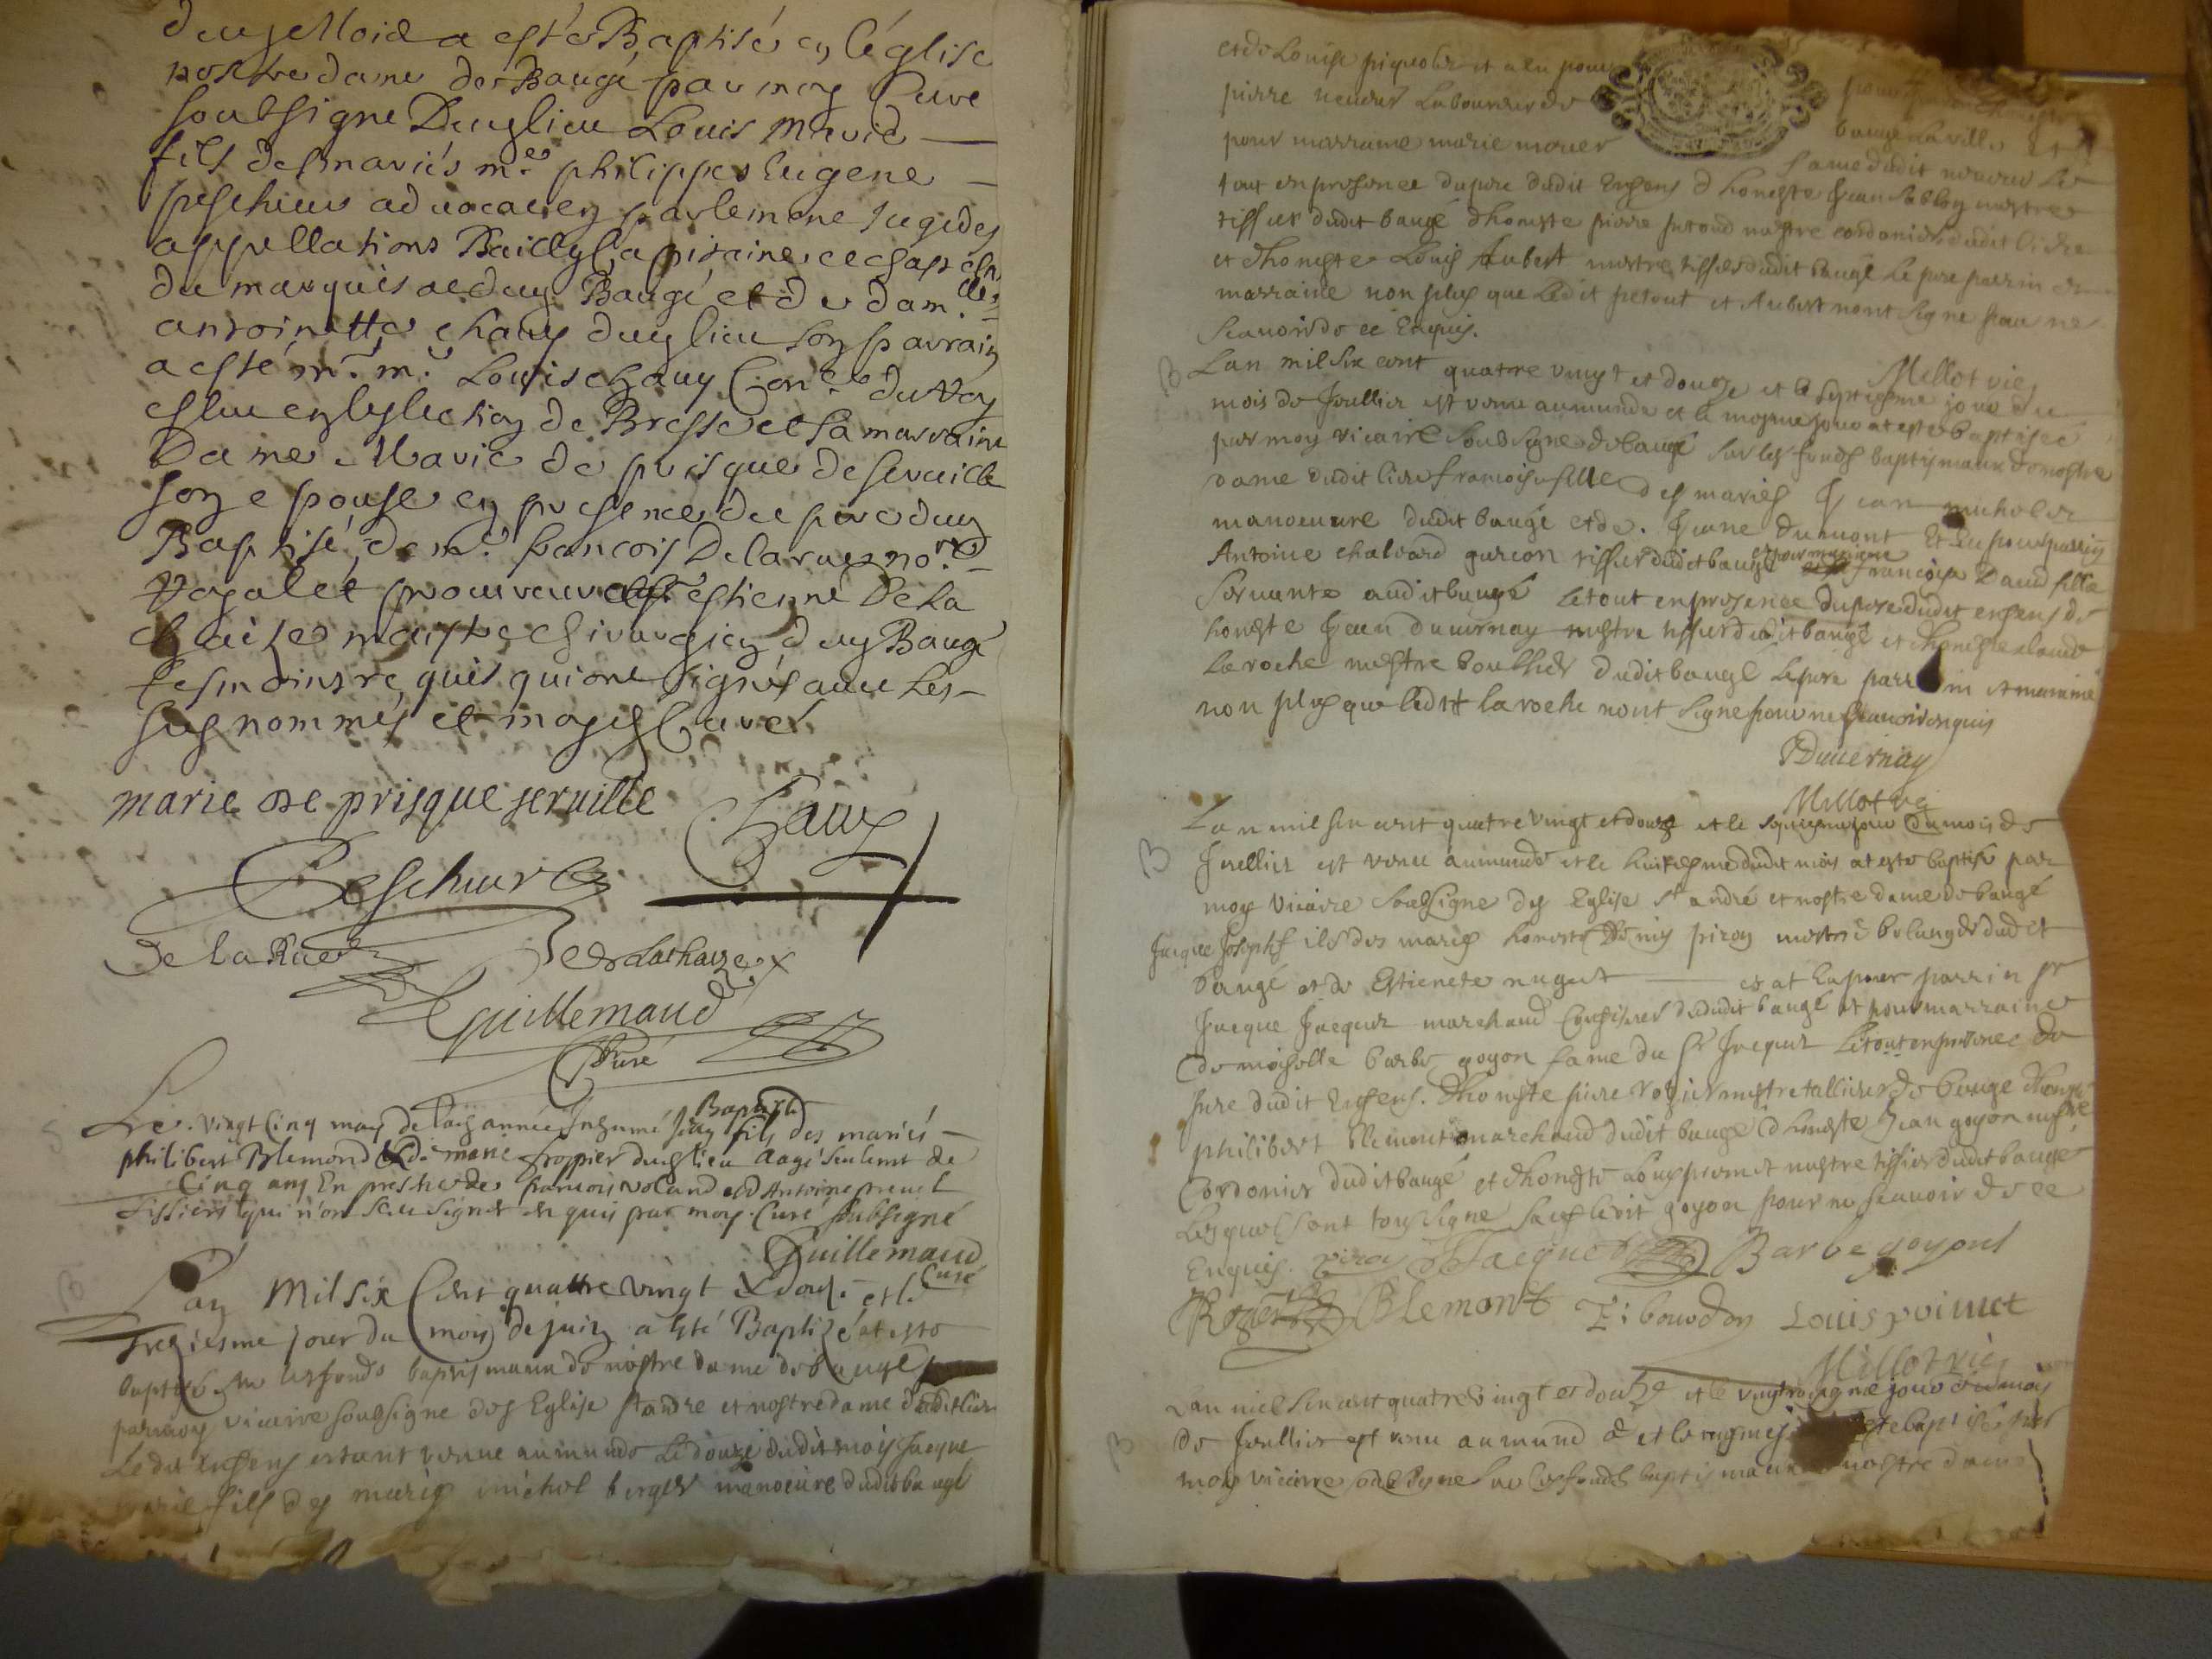 dudit Mois a esté Baptisé en l'église
nostre dame de Baugé par moy Curé
soubsigne Dudlieu Louis Marie
fils des mariés mre philippes Eugene
peschieur advocat en parlement Juge des
appellations Bailly Capitaine et
du marquisat dud Baugé et de dam.lle
antoinette Chaux dudlieu son parrain
a esté mr. mr. Louis Chaux Conser du Roy
esleu en leslection de Bresse et sa marraine
Dame Marie de prisque de seruille
son epouse en presence du pere dud
Baptisé, de mr. francois Delarue no.re
Royal et procureur et estienne De la
chaise maistre chirurgien dud Baugé
tesmoins requis qui ont signés avec les
susnommés et moyd Curé
marie de prisque seruille Chaux
Peschieur
De la Rue De la chaize
Guillemaud
Curé
Baptiste
Le vingt Cinq may de lad année Inhumé Jean fils des mariés
philibert Blemond & de marie froppier dudlieu aagé seulemt de
Cinq ans En presence de francois voland et d Antoine
tissiers qui n'ont sceu signer enquis par moy Curé soubsigné
Guillemaud
Curé
B
Lan Mil six Cent quattre vingt & douze et le
treziesme jour du mois de juin a esté Baptizé at esté
baptise sur les fonds baptismaux de nostre dame de baugé
par moy vicaire soubsigne des Eglise st andre et nostre dame dudit lieu
Ledit enfens estant venue au munde Le douze dudit mois Jacque
marie fils des maries michel berger manoeuvre dudit baugé
et de Louise piquolet et a eu pour
pierre neveur Laboureur de bauge La ville et
pour marrame marie moner fame dudit neveur Le
tout en presence du pere dudit Enfens d honeste Jean sablon mestre
tissier dudit baugé dhoneste pierre petoud mestre cordonier dudit lieu
et dhoneste Louis Aubert mestre tissier dudit baugé Le pere parrin et
marraine non plus que Ledit petout et Aubert nont signe pour ne
scavoir de ce Enquis.
Millot vic
B Lan mil six cent quatre vingt et douze et le septiesme jour du
mois de Juellier est venue au munde et le mesme jour at este baptisée
par moy vicaire soubsigne de baugé sur les fonds baptismaux de nostre
dame dudit lieu francoise fille des mariés Jean michel
manoeuvre dudit baugé et de Jeane Dumont Et Eu pour parrin
et pour marrame
Antoine chalvard garcon tissier dudit baugé francoise Daud fille
servante audit baugé Le tout en presence du pere dudit enfens de
honeste Jean duvernay mestre tissier dudit baugé et dhoneste claude
Laroche mestre boucher dudit baugé Le pere parrin et marraine
non plus que ledit laroche nont signe pour ne scavoir enquis
Duuernay
Millot vic
B Lan mil six cent quatre vingt et douze et le septiesme jour du mois de
Juellier est venu au munde et le huitiesme dudit mois at este baptisé par
moy vicaire soubsigne des Eglise st andré et nostre dame de baugé
Jacque Joseph fils des maries honeste Denis piron mestre bolanger dudit
baugé et de Estienete nuguet et at Eu pour parrin sr
Jacque Jacquet marchand Confisseur dudit baugé et pour marraine
demoiselle barbe goyon fame du sr Jacquet Le tout en presence du
pere dudit Enfens. Dhoneste piere rogier mestre tallieur de bauge dhoneste
philibert Blemont marchand dudit baugé d honeste Jean goyon mestre
Cordonier dudit baugé et dhoneste Louis poimet mestre tissier dudit baugé
Lesquel sont tous signe sauf ledit goyon pour ne scavoir de ce
Enquis. piron Jacquet Barbe goyond
Rogier Blemont Tibourdon Louis poimet
Millot vic
B Lan mil six cent quatre vingt et douze et le jour du mois
de Juellier est venu au mund et le mesme este baptisé par
moy vicaire soubsigne sur les fonds baptismaux nostre dame